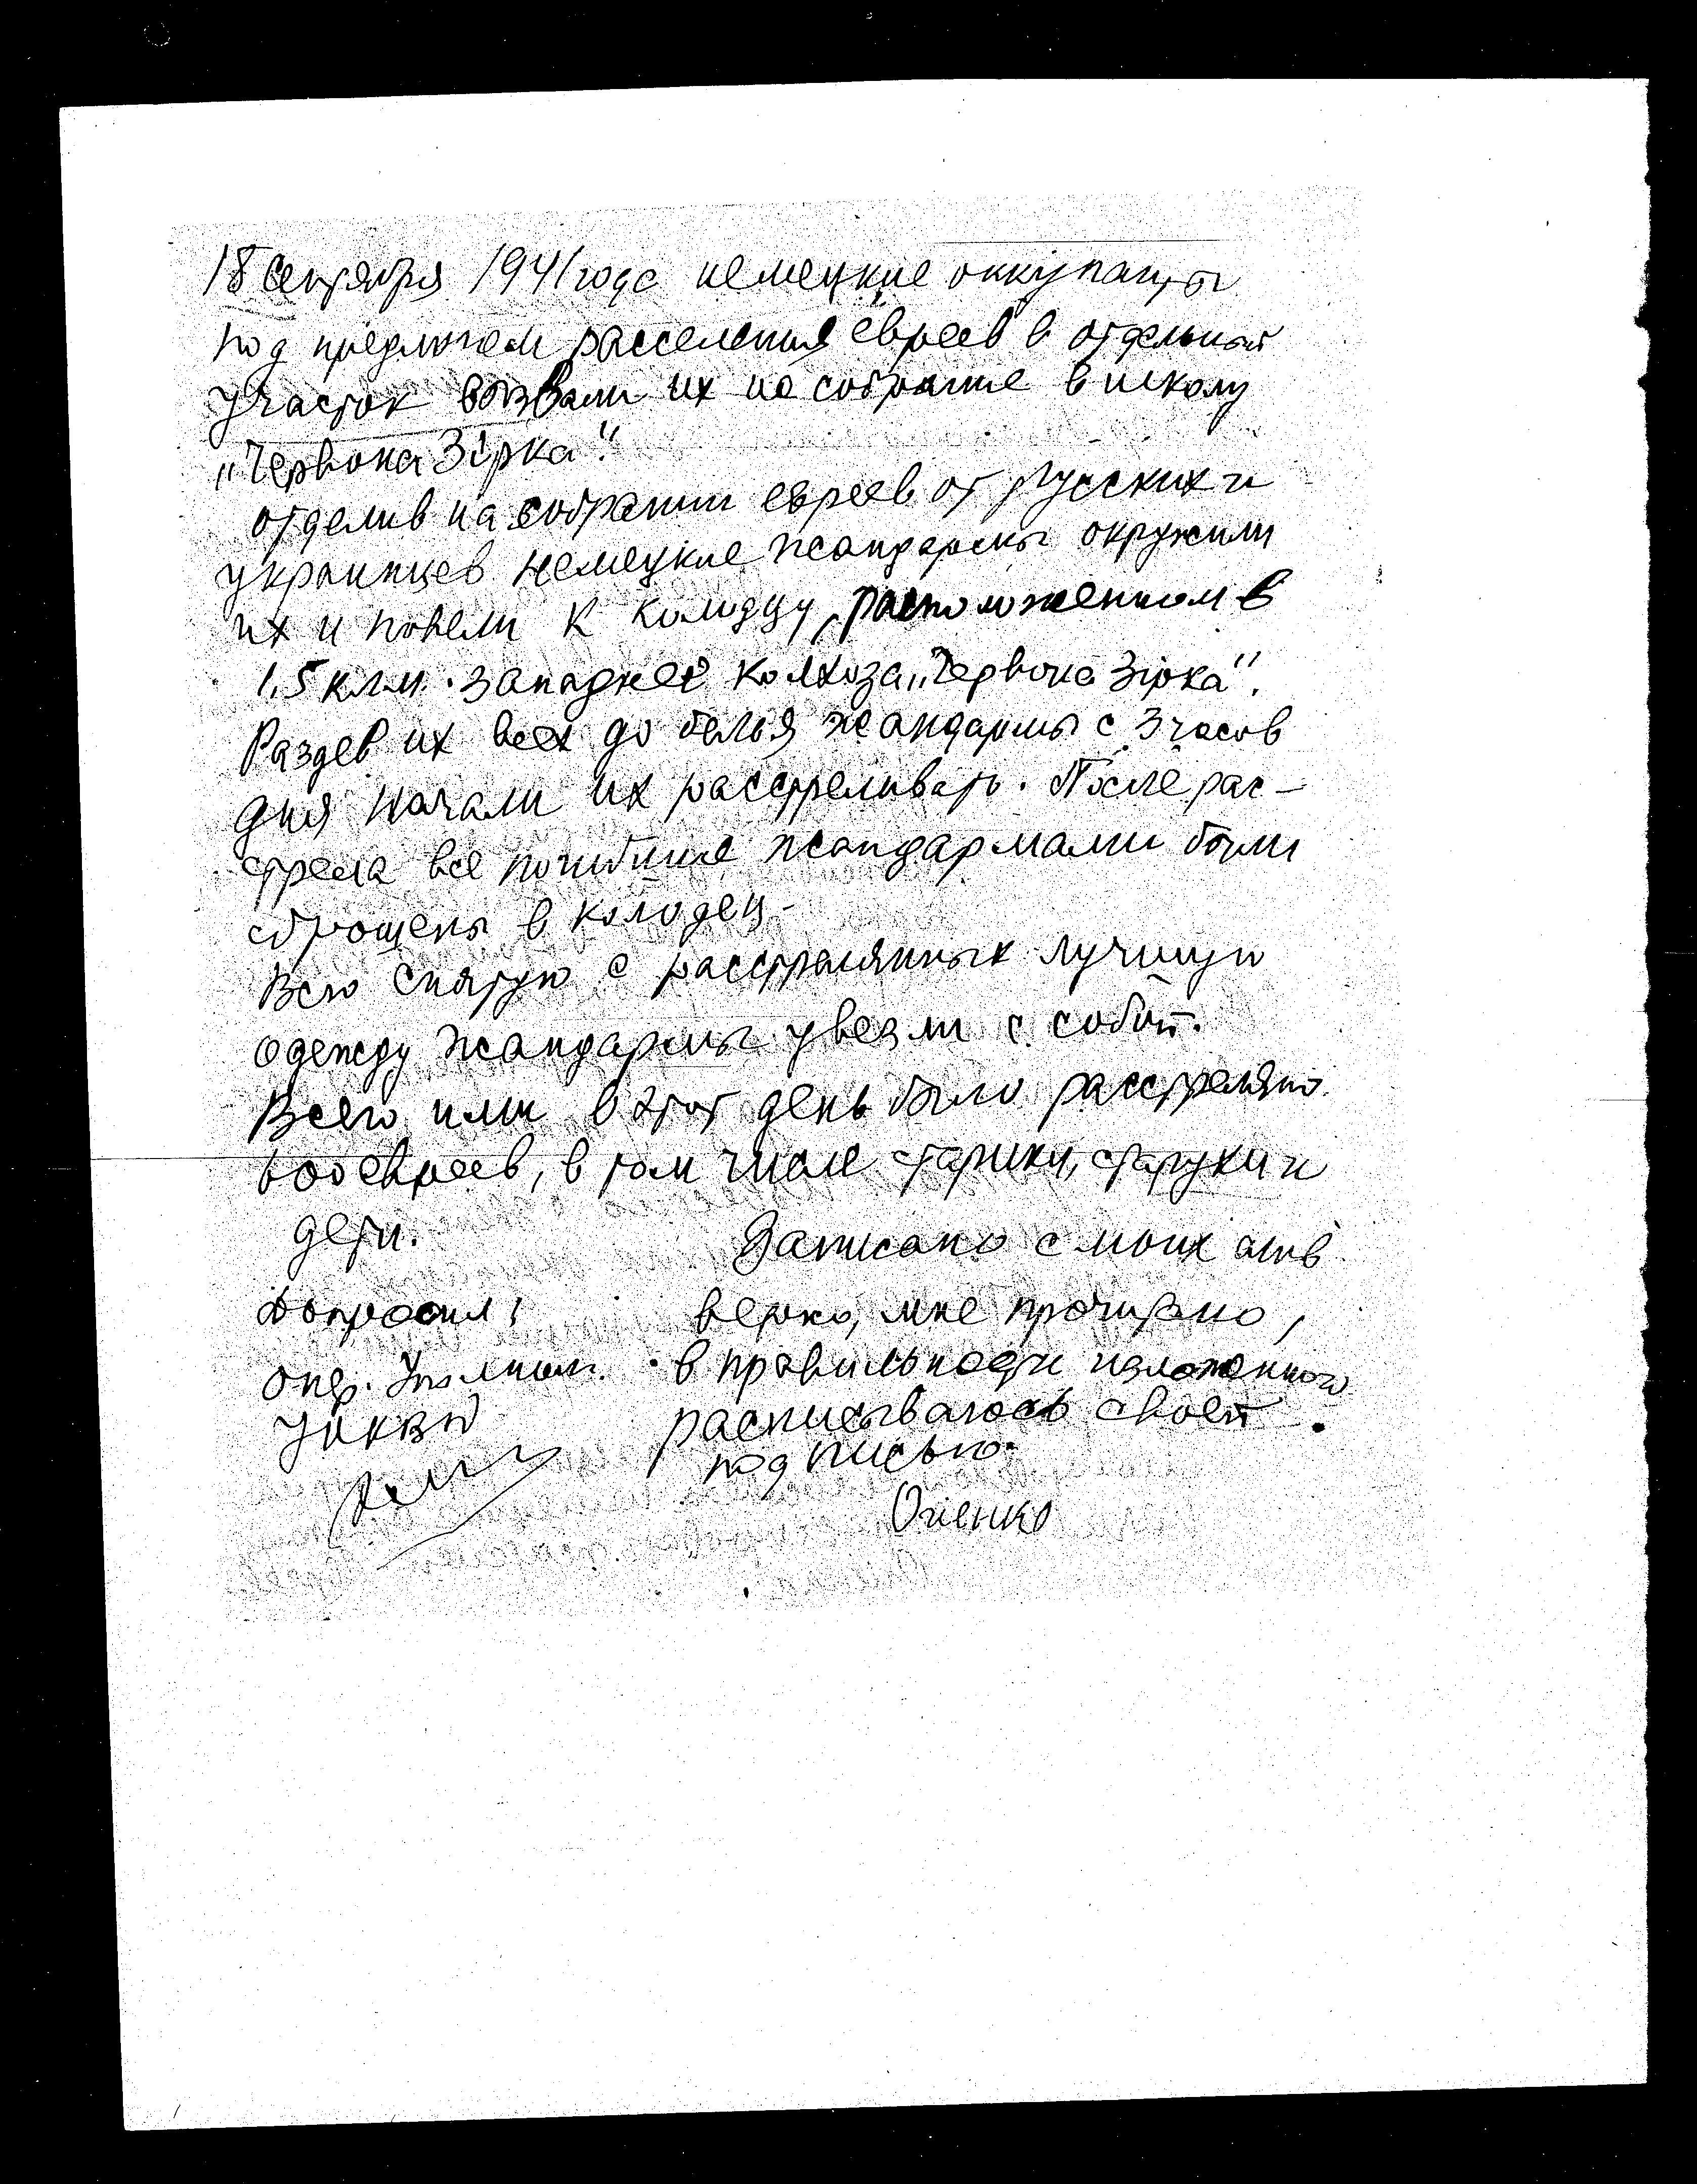 18 сентября 1941 года немецкие оккупанты
под предлогом расселения евреев в отдельный
участок вызвали их на собрание в школу
„Червона Зірка".
отделив на собрании евреев от русских и
украинцев немецкие жандармы окружили
их и повели к колодцу, расположенном в
1,5 клм. западнее колхоза „Червона Зірка".
Раздев их всех до белья жандармы с 3 часов
дня начали их расстреливать. После рас-
стрела все погибшие жандармами были
сброшены в колодец.
Всю снятую с расстрелянных лучшую
одежду жандармы увезли с собой.
Всего ими в этот день было расстреляно
евреев, в том числе старики, старухи и
дети.
Записано с моих слов
Допросил:
верно, мне прочитано,
опер. Уполном.
в правильности изложенного
УНКВД
расписываюсь своей
подписью.